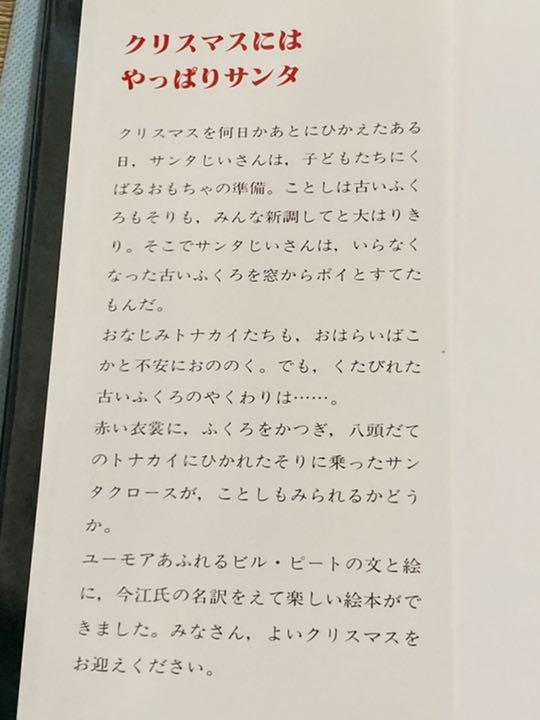 クリスマスには
やっぱりサンタ
クリスマスを何日かあとにひかえたある
日，サンタじいさんは，子どもたちにく
ばるおもちゃの準備。ことしは古いふく
ろもそりも，みんな新調してと大はりき
り。そこでサンタじいさんは，いらなく
なった古いふくろを窓からポイとすてた
もんだ。
おなじみトナカイたちも，おはらいばこ
かと不安におののく。でも，くたびれた
古いふくろのやくわりは……。
赤い衣裳に，ふくろをかつぎ，八頭だて
のトナカイにひかれたそりに乗ったサン
タクロースが，ことしもみられるかどう
か。
ユーモアあふれるビル・ピートの文と絵
に，今江氏の名訳をえて楽しい絵本がで
きました。みなさん，よいクリスマスを
お迎えください。